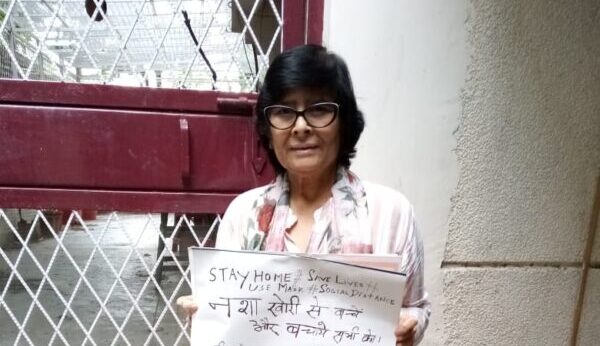 STAY HOME # SAVE LIVES #
USE MASK # SOCIAL DISTANCE
नशा खोरी से बचे
और बचाये सभी को।